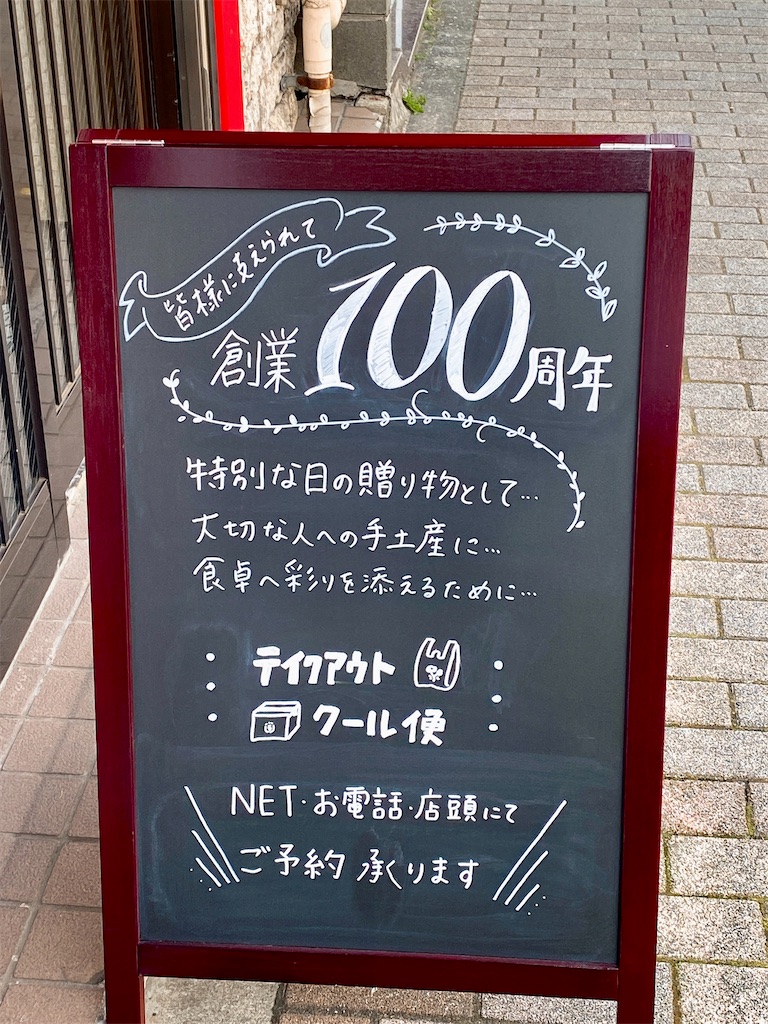 皆様に支えられて
創業100周年
特別な日の贈り物として…
大切な人への手土産に…
食卓へ彩りを添えるために…
テイクアウト
クール便
NET・お電話・店頭にて
ご予約 承ります